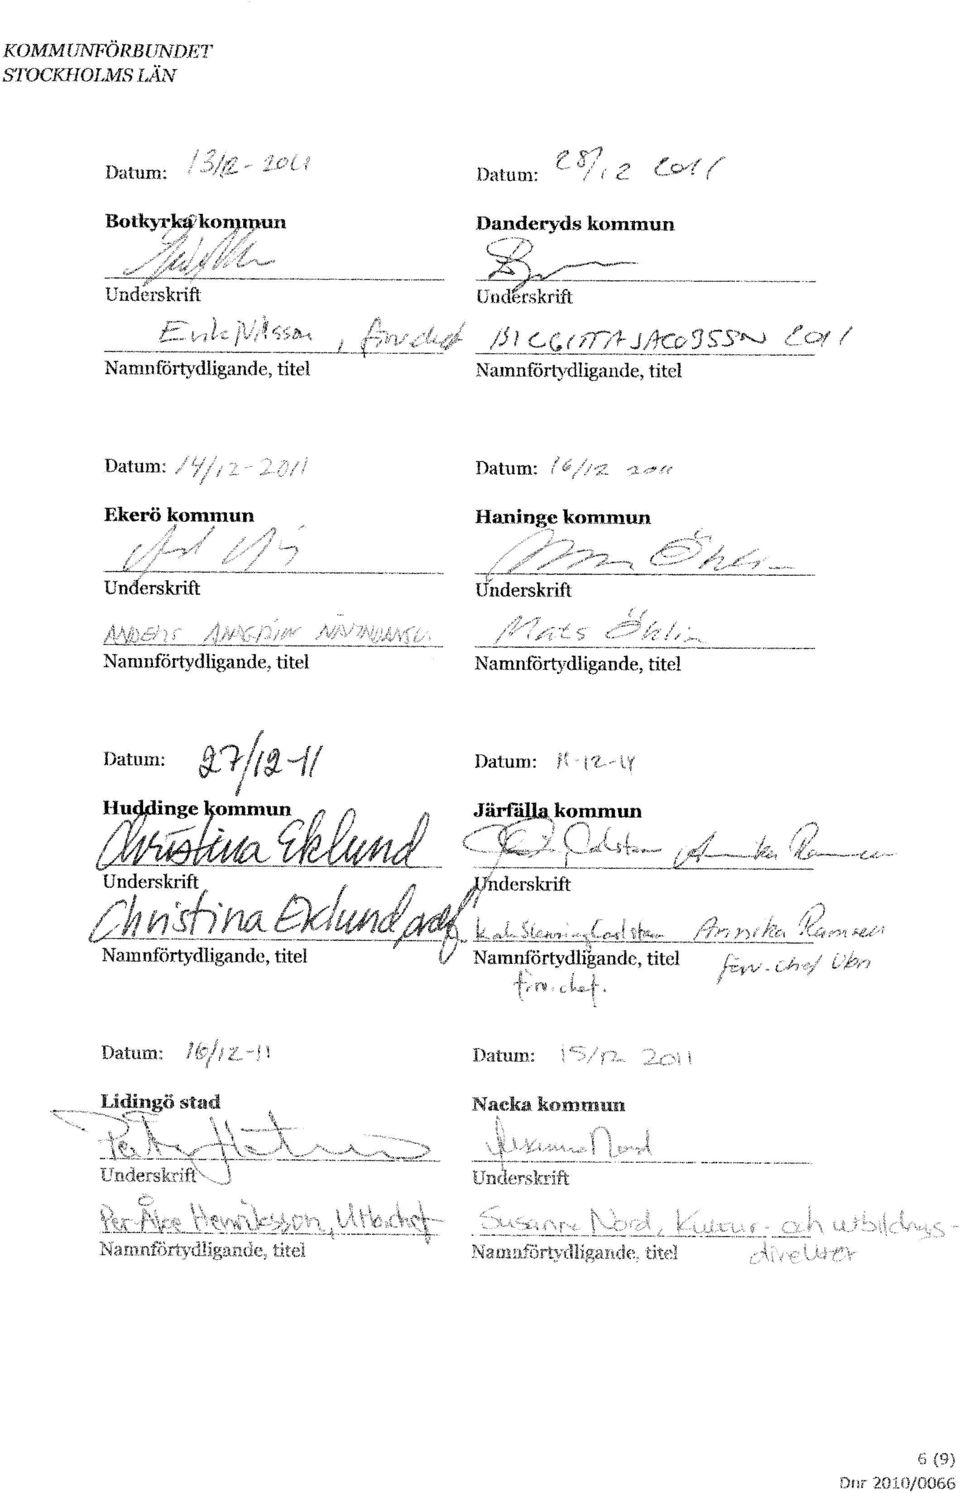 KOMMUNFÖRBUNDET
STOCKHOLMS LÄN
Datum: 13/12-2011
Botkyrka kommun
Underskrift
Erik Nilsson, förv.chef
Namnförtydligande, titel
Datum: 28/12 2011
Danderyds kommun
Underskrift
BIRGITTA JACOBSSON 2011
Namnförtydligande, titel
Datum: 14/12-2011
Ekerö kommun
Underskrift
ANDERS
Namnförtydligande, titel
Datum: 16/12 2011
Haninge kommun
Mats Öhlin
Underskrift
Mats Öhlin
Namnförtydligande, titel
Datum: 27/12-11
Huddinge kommun
Christina Eklund
Underskrift
Christina Eklund
Namnförtydligande, titel
Datum:
Järfälla kommun
Carlstam Annika Ramsell
Underskrift
Carlstam Annika Ramsell
Namnförtydligande, titel förv.chef Ubn
förv.chef.
Datum: 16/12-11
Lidingö stad
Underskrift
Per-Åke Henriksson, Utb.chef
Namnförtydligande, titel
Datum: 15/12 2011
Nacka kommun
Susanne Nord
Underskrift
Susanne Nord, Kultur- och utbildnings-
Namnförtydligande, titel direktör
6 (9)
Dnr 2010/0066